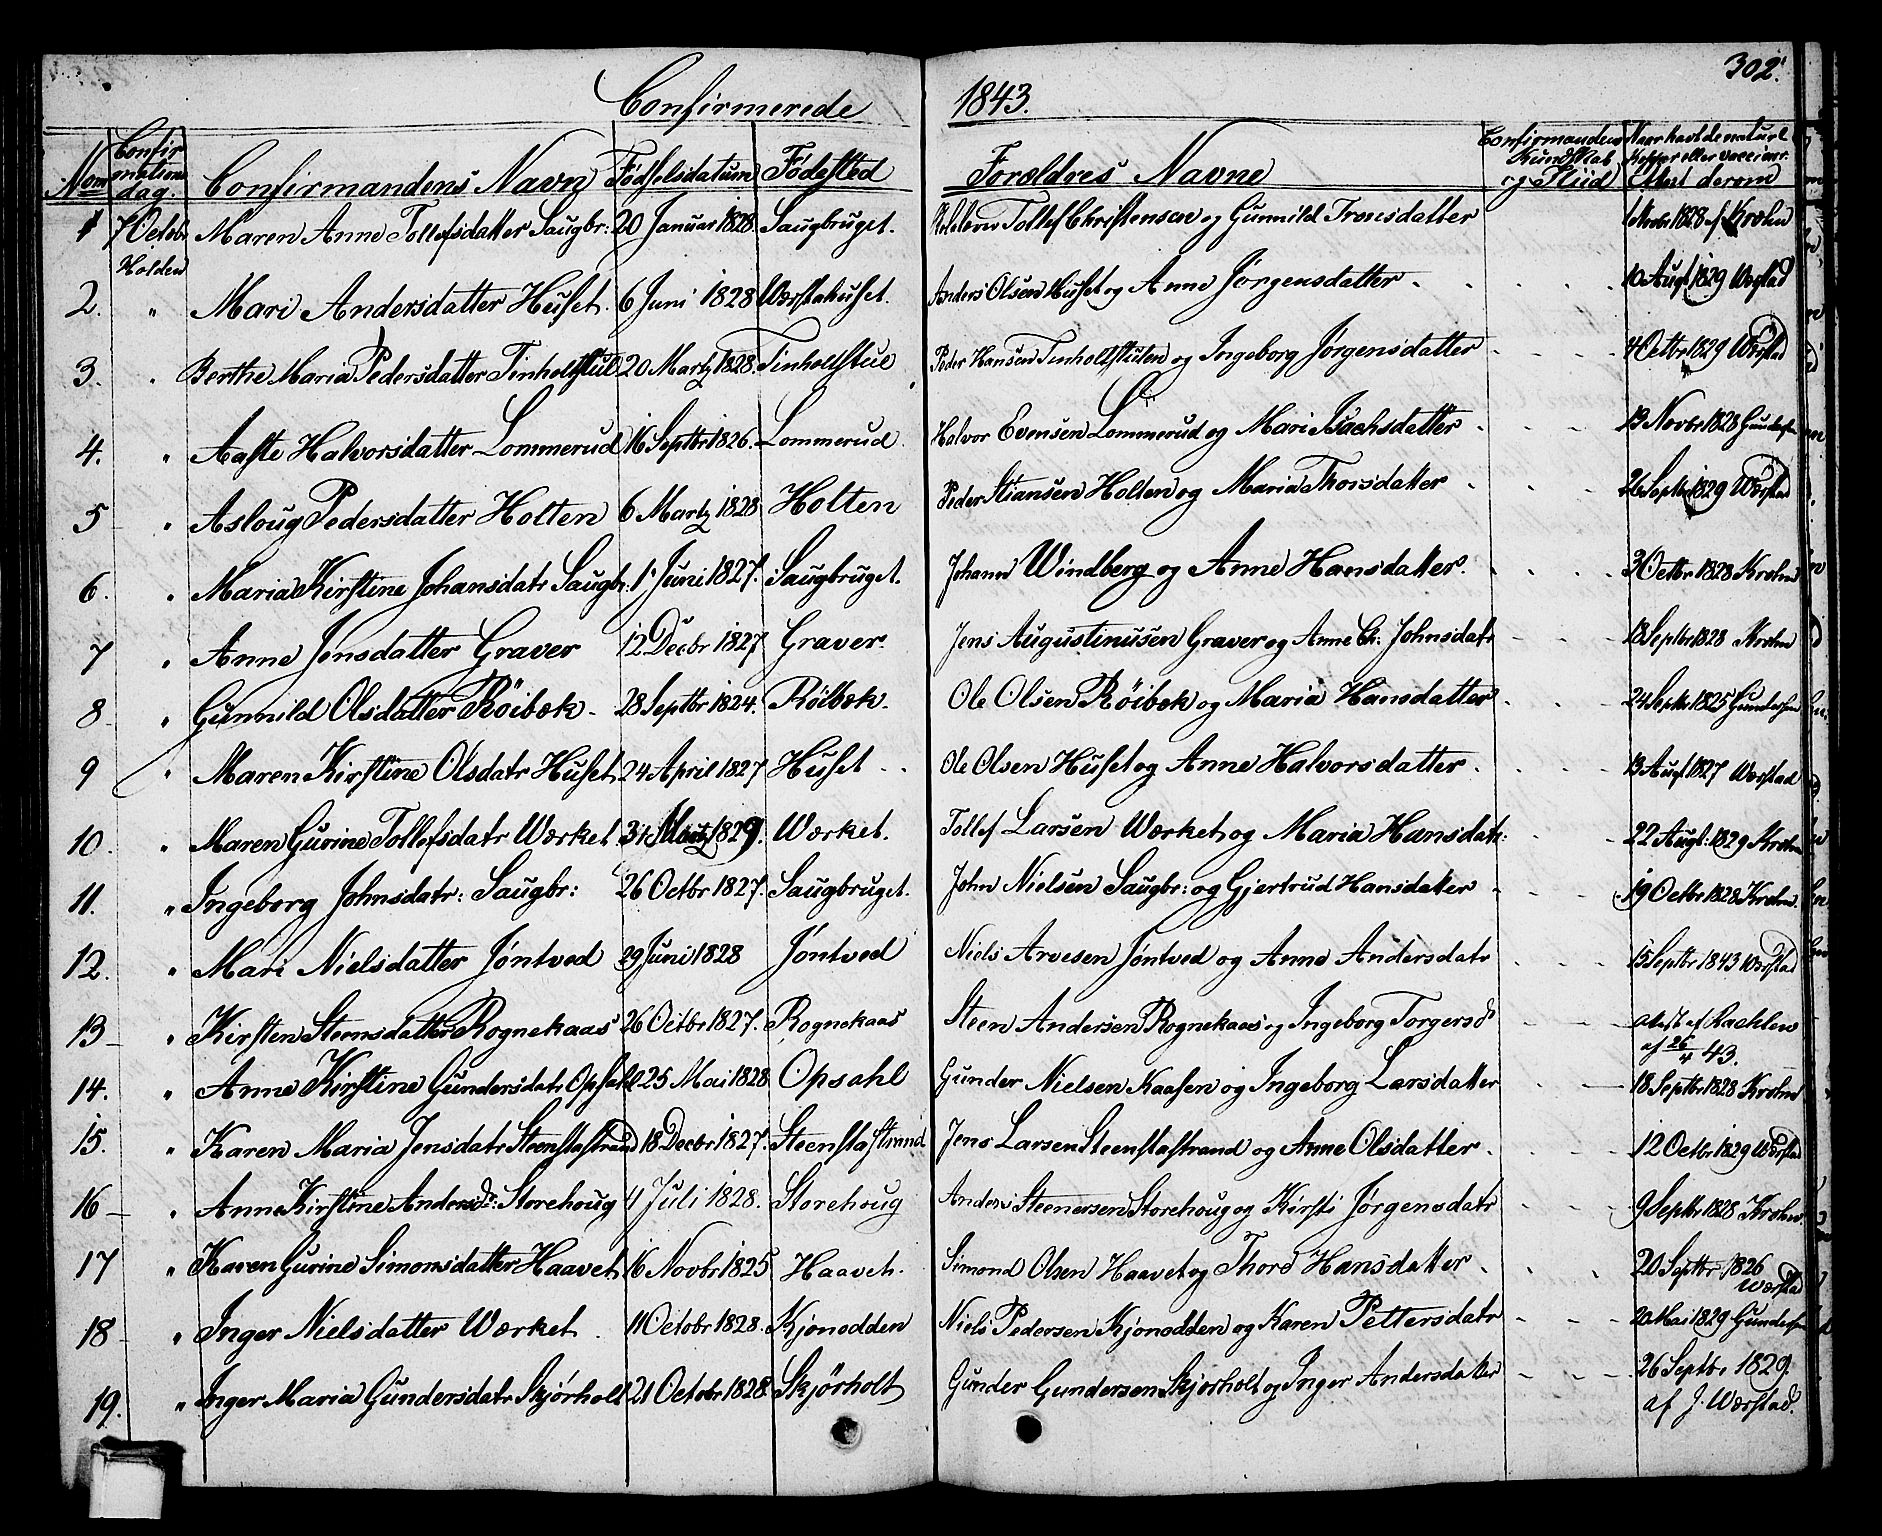 302.
Confirmerede 1843.
Nom Confirmations dag. Confirmandens Navn Fødselsdatum Fødested Forældres Navne Confirmandens Kundskab og Fliid Naar havt de naturl. Kopper eller vaccinr. Attest derom
1 7 Octobr Maren Anne Tollefsdatter Saugbr: 20 Januar 1828. Saugbruget. Tollef Christensen og Gunnild Tronsdatter 1828 af Krohn
Holden
2. " Mari Andersdatter Huset. 6 Juni 1828 Værstahuset. Anders Olsen Huset og Anne Jørgensdatter 10 Augt 1829 Værstad
3. " Berthe Maria Pedersdatter Tinholtstul 20 Martz 1828. Tinholtstue Peder Hansen Tinholtstulen og Ingeborg Jørgensdatter 4 Octbr 1829 Værstad
4. " Aaste Halvorsdatter Lommerud 16 Septbr 1826. Lommerud. Halvor Evensen Lommerud og Mari Isachsdatter 13 Novbr 1828 Gundersen
5 " Asloug Pedersdatter Holten 6 Martz 1828 Holten Peder Stiansen Holten og Maria Thorsdatter 26 Septbr 1829 Værstad
6. " Maria Kirstine Johansdatr Saugbr: 1 Juni 1827. Saugbruget. Johan Windberg og Anne Hansdatter. 3 Octbr 1828 Krohn
7 " Anne Jensdatter Graver 12 Decbr 1827 Graver. Jens Augustinusen Graver og Anne Ch: Johnsdatr 18 Septbr 1828 Krohn
8 " Gunnild Olsdatter Röibæk 28 Septbr 1824. Röibæk. Ole Olsen Röibæk og Maria Hansdatter 24 Septbr 1825 Gundersen
9 " Maren Kirstine Olsdatr Huset 24 April 1827 Huset Ole Olsen Huset og Anne Halvorsdatter. 13 Augt 1827 Værstad
10. " Maren Gurine Tollefsdatr Værket 31 Martz 1829. Værket. Tollef Larsen Værket og Maria Hansdatr: 22 Augt: 1829 Krohn
11. " Ingeborg Johnsdatr: Saugbr: 26 Octbr 1827. Saugbruget. John Nielsen Saugbr: og Gjertrud Hansdatter 19 Octbr 1828 Krohn.
12. " Mari Nielsdatter Jøntved 29 Juni 1828 Jøntved Niels Arvesen Jøntved og Anne Andersdatr 15 Septbr 1843 Værstad
13 " Kirsten Steensdatter Rognekaas 26 Octbr 1827. Rognekaas Steen Andersen Rognekaas og Ingeborg Torgersd attest af Rachlew
af 26/4 43.
14. " Anne Kirstine Gundersdatr Opsahl 25 Mai 1828 Opsahl Gunder Nielsen Kaasen og Ingeborg Larsdatter 18 Septbr 1828 Krohn
15. " Karen Maria Jensdatr Steenstastrand 18 Decbr 1827. Steenstastrand Jens Larsen Steenstastrand og Anne Olsdatter. 12 Octbr 1829 Værstad
16 " Anne Kirstine Andersdr: Storehoug 4 Juli 1828. Storehoug Anders Steenersen Storehoug og Kirsti Jørgensdatr 9 Septbr 1828 Krohn.
17 " Karen Gurine Simonsdatter Haavet 16 Novbr 1825 Haavet. Simond Olsen Haavet og Thore Hansdatter 20 Septbr 1826
Værstad
18 " Inger Nielsdatter Værket 11 Octobr 1828. Kjonodden Niels Pedersen Kjonodden og Karen Pettersdatr 20 Mai 1829 Gundersen
19. " Inger Maria Gundersdatr Skjørholt 21 Octobr 1828. Skjørholt Gunder Gundersen Skjorholt og Inger Andersdatter 26 Septbr 1829.
af J. Værstad.